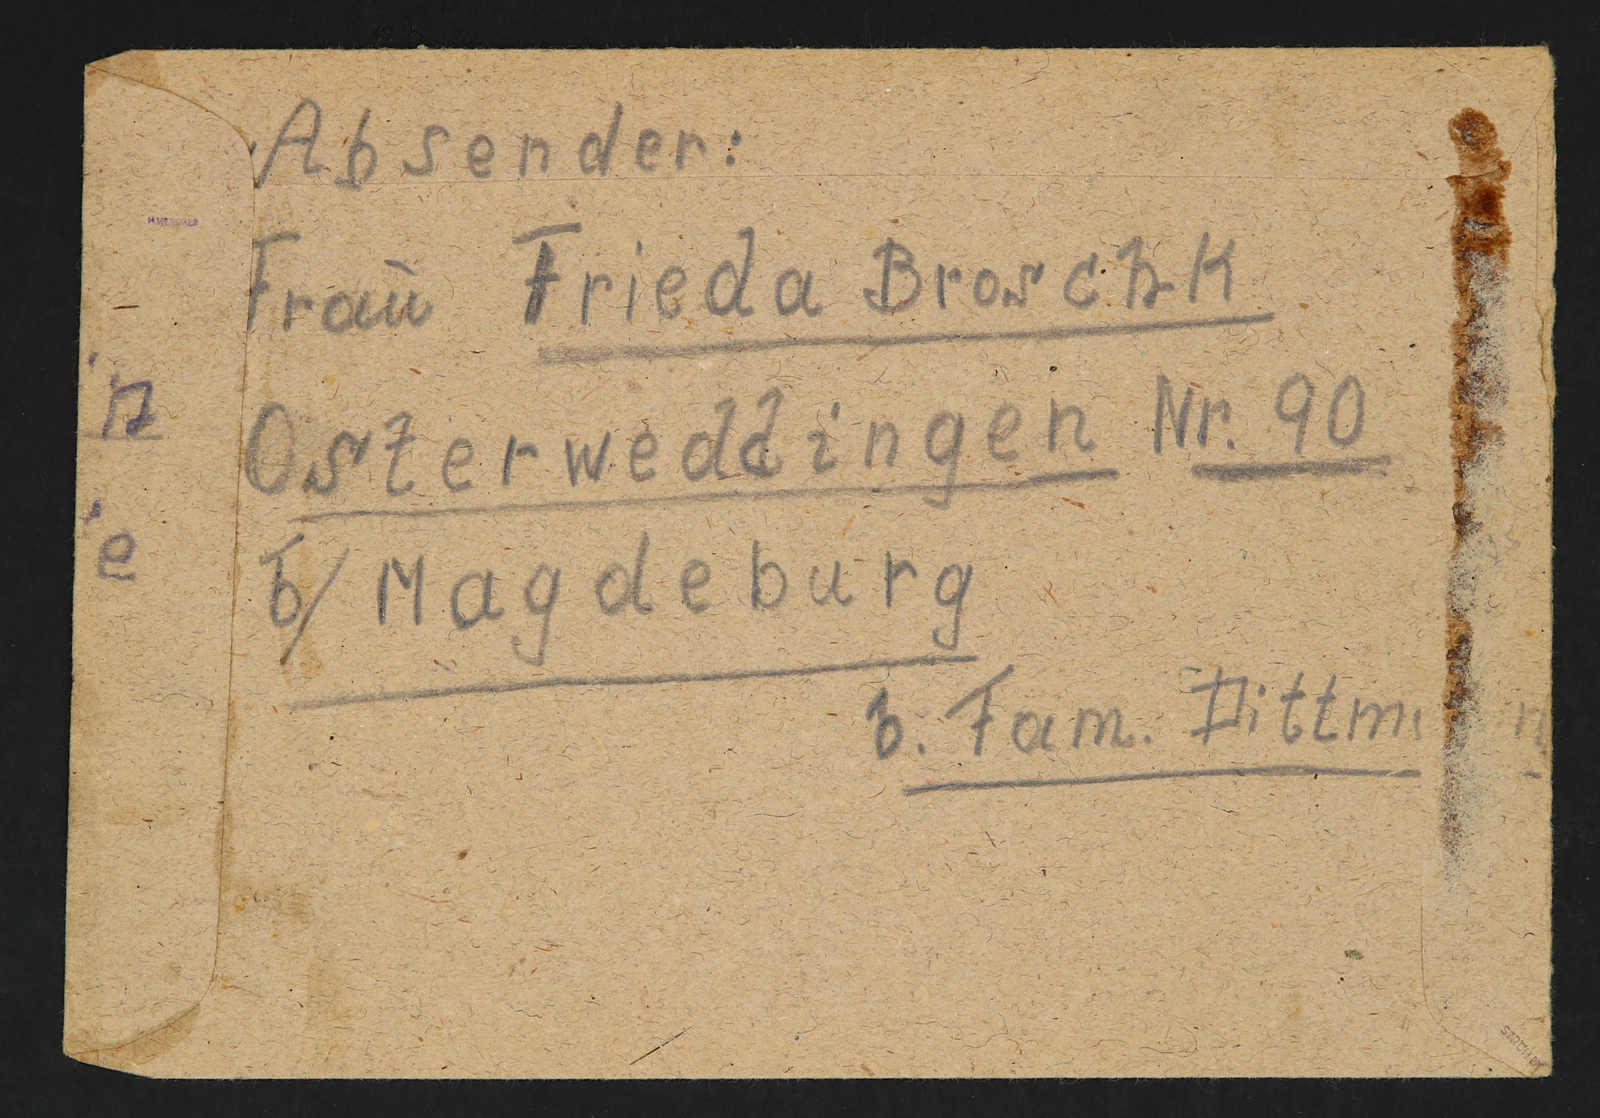 Absender:
Frau Frieda Broschk
Osterweddingen Nr. 90
b/ Magdeburg
b. Fam.
n
e